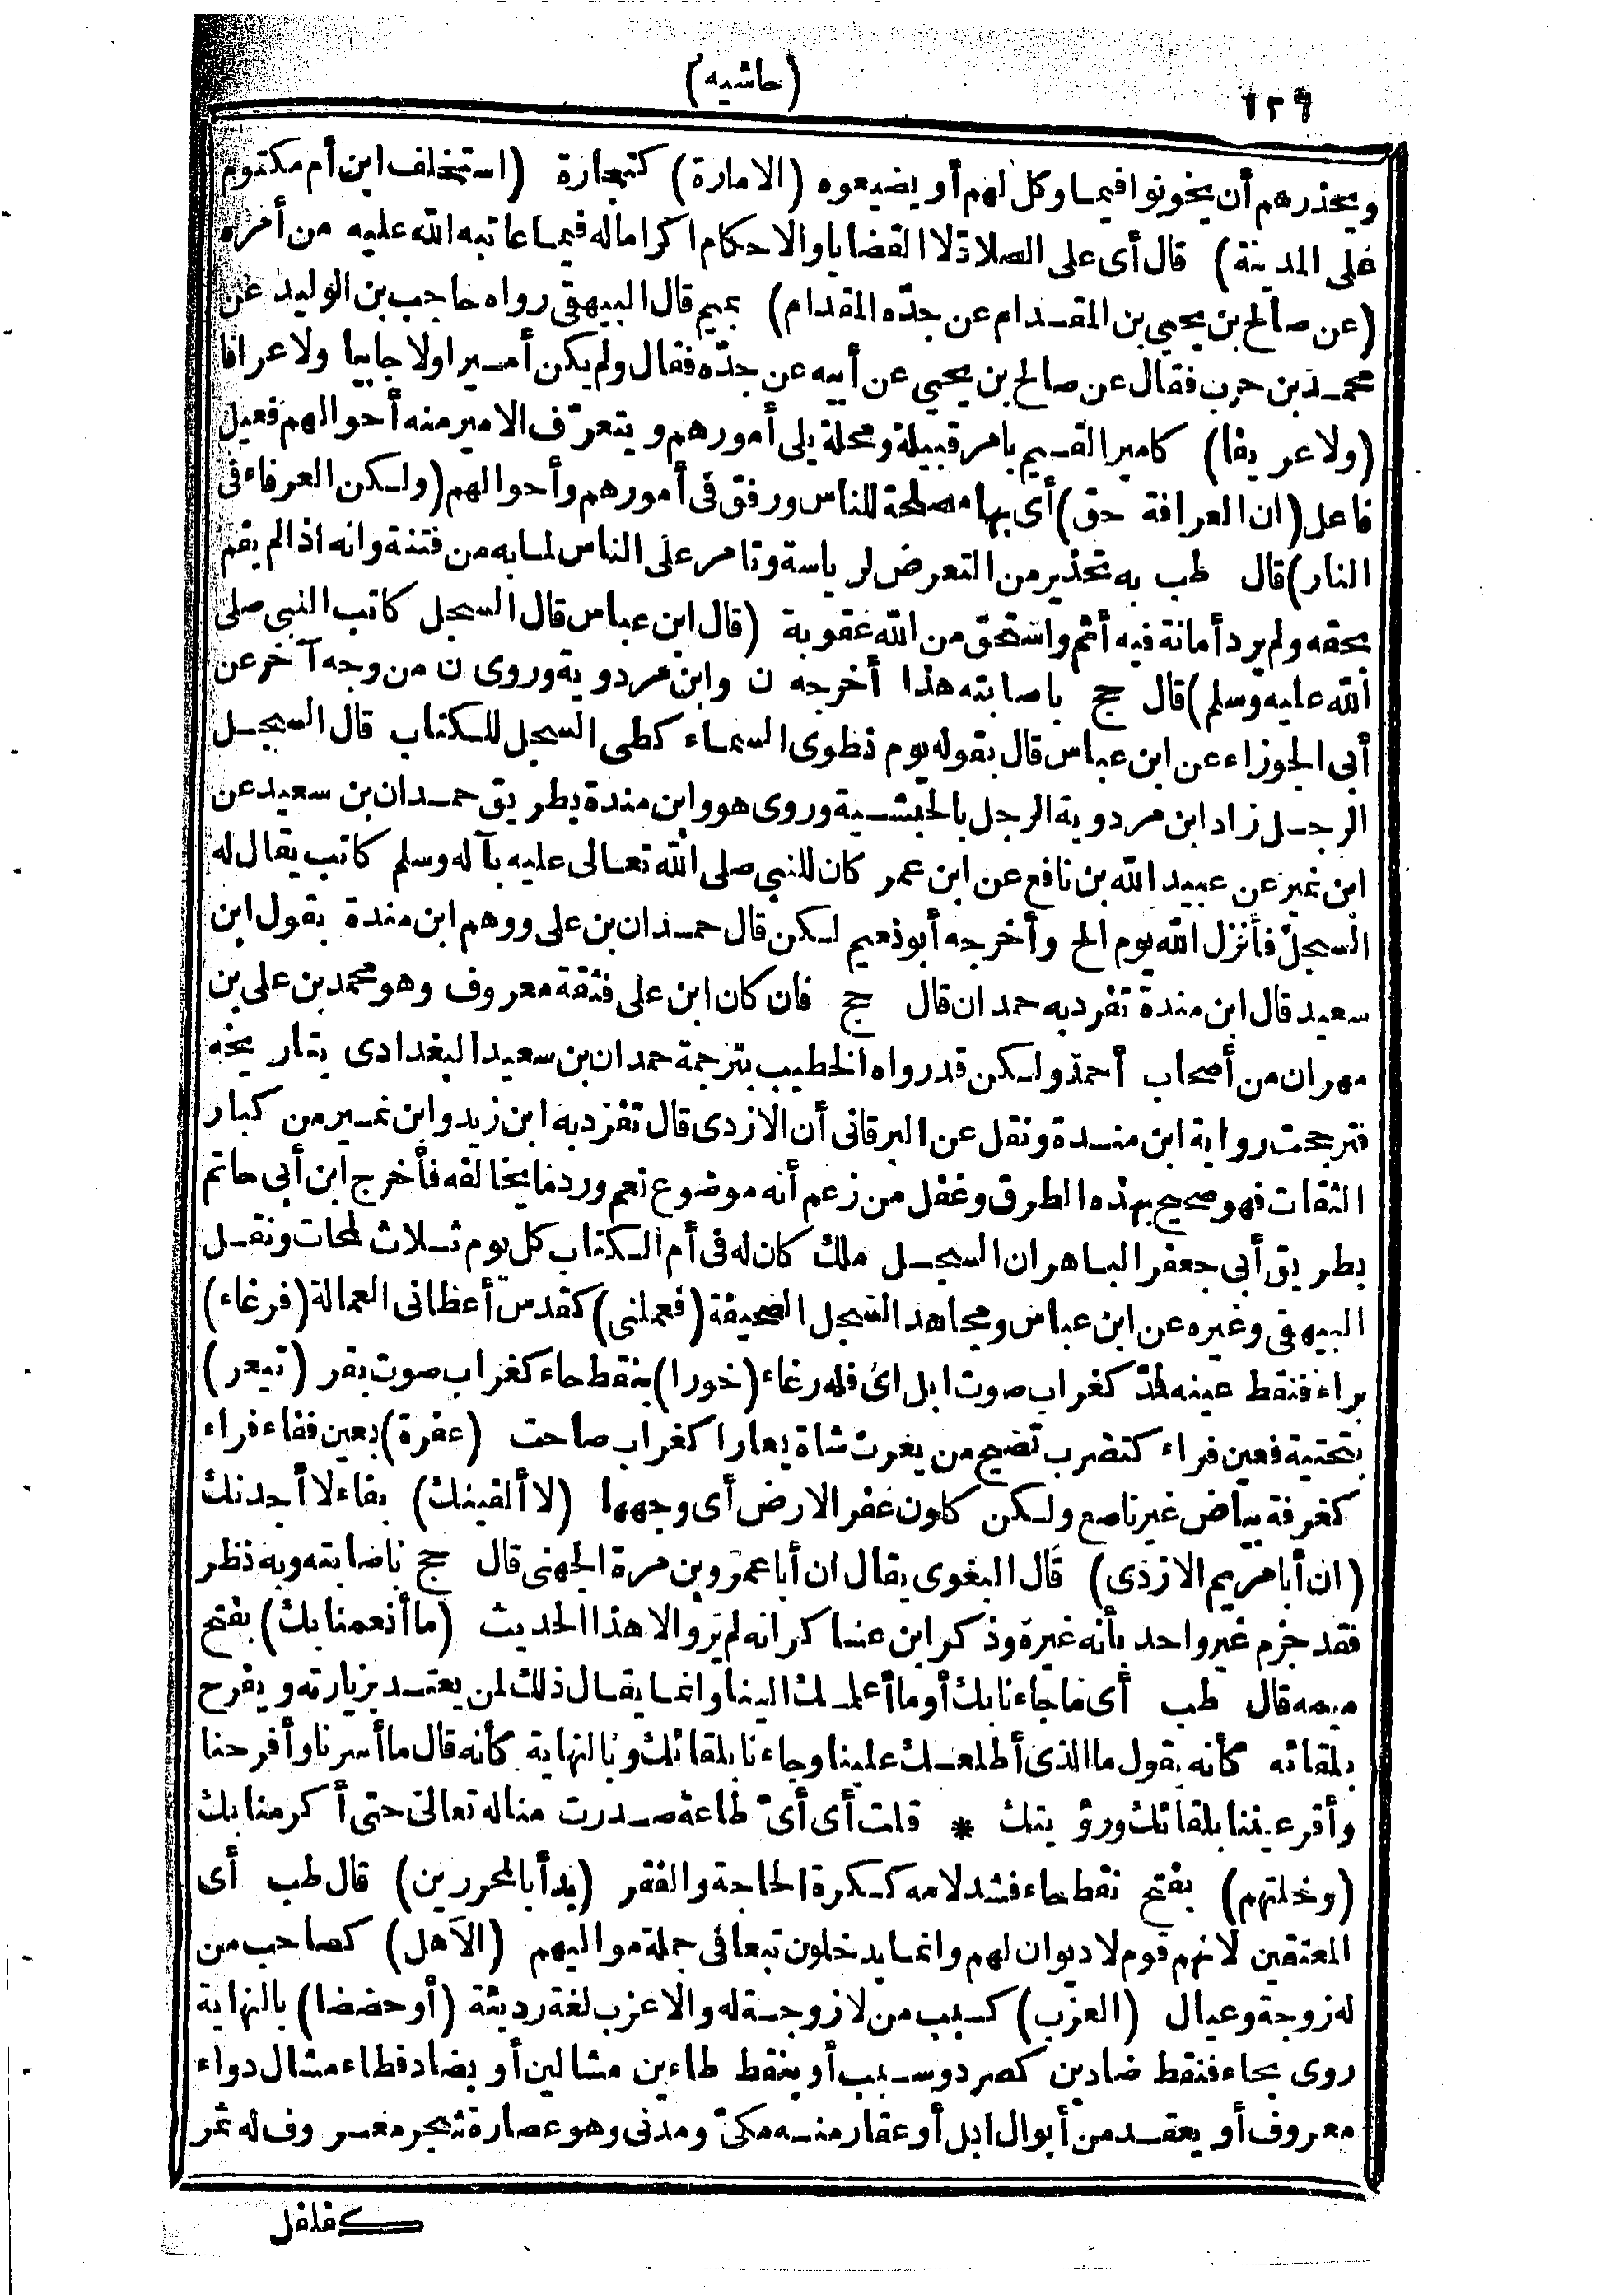 ١٢٦
(حاشيه)
ويحذرهم أن يخونوا فيما وكل لهم أو يضيعوه (الامارة) كتجارة (استخلف ابن أم مكتوم
على المدينة) قال أى على الصلاة لا القضايا والاحكام اكراما له فيما عاتبه الله عليه من أمره
(عن صالح بن يحيى بن المقدام عن جدّه المقدام) بميم قال البيهقى رواه حاجب بن الوليد عن
محمد بن حرب فقال عن صالح بن يحيى عن أبيه عن جدّه فقال ولم يكن أميرا ولا جابيا ولا عرافا
(ولا عريفا) كامير القيم بامر قبيلة ومحلة يلى أمورهم ويتعرّف الامير منه أحوالهم فعيل
فاعل (ان العرافة حق) أى بها مصلحة للناس ورفق فى أمورهم وأحوالهم (ولكن العرفاء فى
النار) قال طب به تحذير من التعرض لرياسة وتامر على الناس لما به من فتنة وانه اذا لم يقم
بحقه ولم يرد أمانة فيه أثم واستحق من الله عقوبة (قال ابن عباس قال السجل كاتب النبى صلى
الله عليه وسلم) قال حج باصابته هذا أخرجه ن وابن مردوية وروى ن من وجه آخر عن
أبى الجوزاء عن ابن عباس قال بقوله يوم نطوى السماء كطى السجل للكتاب قال السجل
الرجل زاد ابن مردوية الرجل بالحبشية وروى هو وابن مندة بطريق حمدان بن سعيد عن
ابن نمير عن عبيد الله بن نافع عن ابن عمر كان للنبى صلى الله تعالى عليه بآله وسلم كاتب يقال له
السجلّ فأنزل الله يوم الح وأخرجه أبو نعيم لكن قال حمدان بن على ووهم ابن مندة بقول ابن
سعيد قال ابن مندة تفرد به حمدان قال حج فان كان ابن على فثقة معروف وهو محمد بن على بن
مهران من أصحاب أحمد ولكن قد رواه الخطيب بترجمة حمدان بن سعيد البغدادى بتاريخه
فترجحت رواية ابن مندة ونقل عن البرقانى أن الازدى قال تفرد به ابن زيد وابن نمير من كبار
الثقات فهو صحيح بهذه الطرق وغفل من زعم أنه موضوع نعم ورد ما يخالفه فأخرج ابن أبى حاتم
بطريق أبى جعفر الباهر ان السجل ملك كان له فى أم الكتاب كل يوم ثلاث لمحات ونقل
البيهقى وغيره عن ابن عباس ومجاهد السجل الصحيفة (فعملنى) كقدّس أعطانى العمالة (فرغاء)
براء فنقط عينه لمدّ كغراب صوت ابل اى فله رغاء (خورا) بنقط حاء كغراب صوت بقر (تيعر)
بتحتية فعين فراء كتضرب تضج من يعرت شاة يعارا كغراب صاحت (عفرة) بعين ففاء فراء
كغرفة بياض غير ناصع ولكن كلون عفر الارض أى وجهها (لا ألفينك) بفاء لا أجدنك
(ان أبا مريم الازدى) قال البغوى يقال ان أبا عمرو بن مرة الجهنى قال حج ناصابته وبه نظر
فقد جزم غير واحد بأنه غيره وذكر ابن عساكر انه لم يرو الا هذا الحديث (ما أنعمنا بك) بفتح
ميمه قال طب أى ما جاءنا بك أو ما أعملك الينا وانما يقال ذلك لمن يعتد بزيارته ويفرح
بلقائه كأنه يقول ما الذى أطلعك علينا وجاءنا بلقائك وبالنهاية كأنه قال ما أسرنا وأفرحنا
وأقر عيننا بلقائك ورؤيتك * قلت أى أىّ طاعة صدرت منا له تعالى حتى أكرمنا بك
(وخلتهم) بفتح نقط حاء فشد لامه ككرة الحاجة والفقر (بدأ بالمحررين) قال طب أى
المعتقين لانهم قوم لا ديوان لهم وانما يدخلون تبعا فى جملة مواليهم (الآهل) كصاحب من
له زوجة وعيال (العزب) كسبب من لا زوجة له والاعزب لغة رديئة (أو حضضا) بالنهاية
روى بحاء فنقط ضادين كصرد وسبب أو بنقط طاءين مشالين أو بضاد فطاء مشال دواء
معروف أو يعقد من أبوال ابل أو عقار منه مكىّ ومدنى وهو عصارة شجر معروف له ثمر
كفلفل